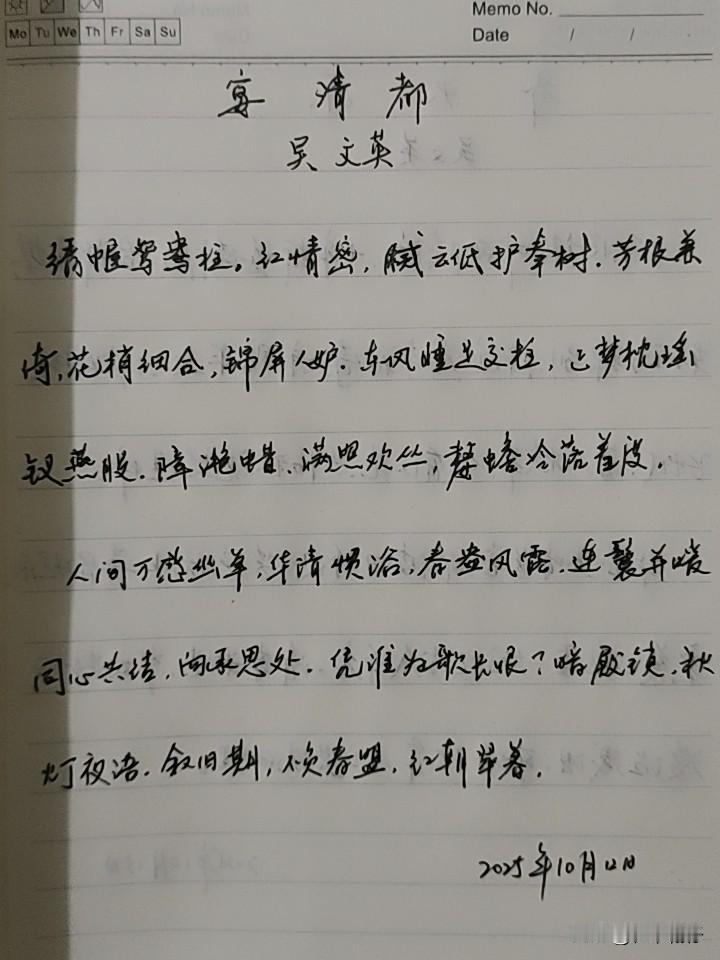 Memo No.
Mo Tu We Th Fr Sa Su
Date / /
宴清都
吴文英
绣幄鸳鸯柱。红情密,腻云低护秦树.芳根兼
倚,花梢钿合,锦屏人妒.东风睡足交枝,正梦枕瑶
钗燕股.障滟蜡、满照欢丛,嫠蟾冷落羞度.
人间万感幽单,华清惯浴,春盎风露.连鬟并暖
同心共结,向承恩处.凭谁为歌长恨?暗殿锁、秋
灯夜语.叙旧期,不负春盟,红朝翠暮.
2025年10月12日